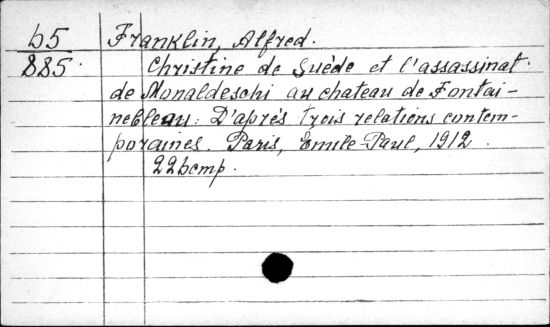 b5 Franklin, Alfred.
885. Christine de Suède et l'assassinat
de Monaldeschi au chateau de Fontai-
nebleau: D'après trois relations contem-
poraines. Paris, Emile-Paul, 1912.
22bcmp.